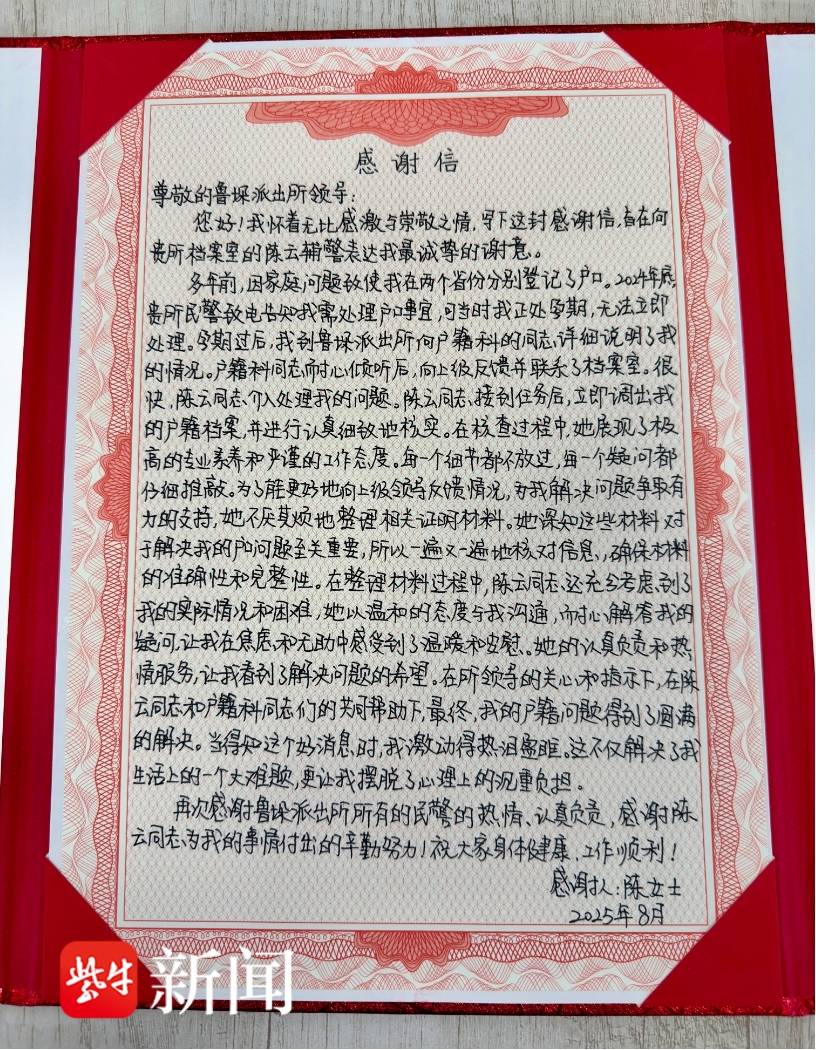 感谢信
尊敬的鲁垛派出所领导:
您好!我怀着无比感激与崇敬之情,写下这封感谢信,旨在向
贵所档案室的陈云辅警表达我最诚挚的谢意。
多年前,因家庭问题致使我在两个省份分别登记了户口。2024年底
贵所民警致电告知我需处理户口事宜,可当时我正处孕期,无法立即
处理。孕期过后,我到鲁垛派出所向户籍科的同志详细说明了我
的情况。户籍科同志耐心倾听后,向上级反馈并联系了档案室。很
快,陈云同志介入处理我的问题。陈云同志接到任务后,立即调出我
的户籍档案,并进行认真细致地核实。在核查过程中,她展现了极
高的专业素养和严谨的工作态度。每一个细节都不放过,每一个疑问都
仔细推敲。为了能更好地向上级领导反馈情况,为我解决问题争取有
力的支持,她不厌其烦地整理相关证明材料。她深知这些材料对
于解决我的户口问题至关重要,所以一遍又一遍地核对信息,确保材料
的准确性和完整性。在整理材料过程中,陈云同志还充分考虑到了
我的实际情况和困难,她以温和的态度与我沟通,耐心解答我的
疑问,让我在焦虑和无助中感受到了温暖和安慰。她的认真负责和热
情服务,让我看到了解决问题的希望。在所领导的关心和指示下,在陈
云同志和户籍科同志们的共同帮助下,最终,我的户籍问题得到了圆满
的解决。当得知这个好消息时,我激动得热泪盈眶。这不仅解决了我
生活上的一个大难题,更让我摆脱了心理上的沉重负担。
再次感谢鲁垛派出所所有的民警的热情、认真负责,感谢陈
云同志为我的事情付出的辛勤努力!祝大家身体健康、工作顺利!
感谢人:陈女士
2025年8月
紫牛新闻